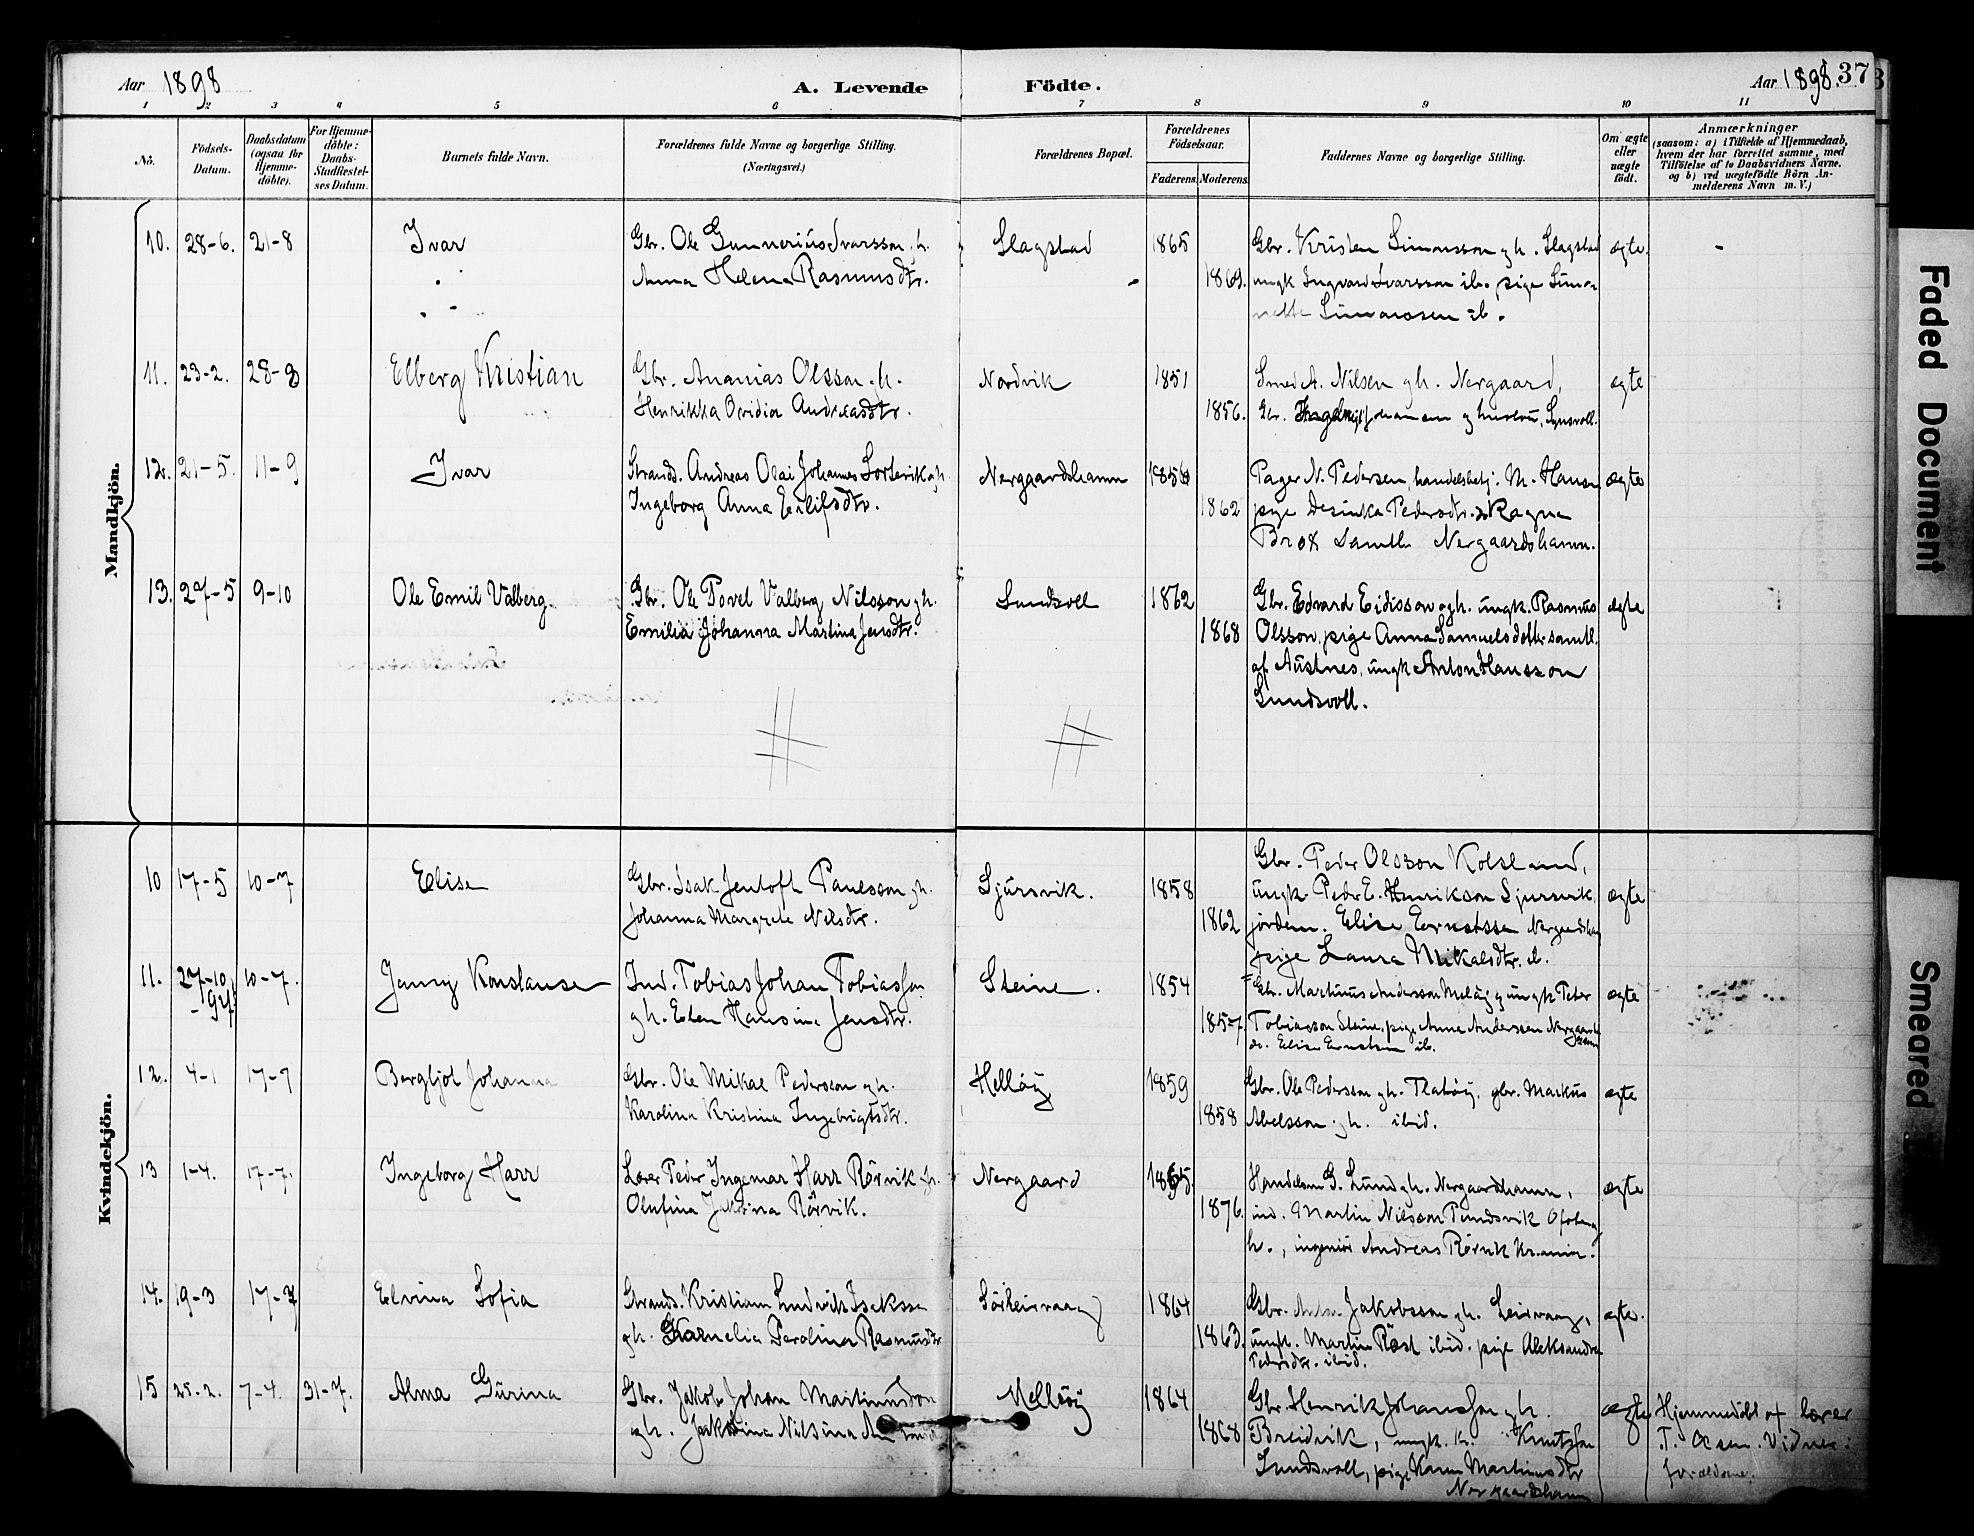 Aar 1898
A. Levende Födte.
Aar 1898. 37
1 2 3 4 5 6 7 8 9 10 11
No.
Födsels-Datum.
Daabsdatum (ogsaa for Hjemme-döbte).
For Hjemme-döbte: Daabs-Stadfæstel-ses Datum.
Barnets fulde Navn.
Forældrenes fulde Navne og borgerlige Stilling.
(Næringsvei.)
Forældrenes Bopæl.
Forældrenes Födselsaar.
Faderens. Moderens.
Faddernes Navne og borgerlige Stilling.
Om ægte eller uægte födt.
Anmærkninger
(saasom: a) i Tilfælde af Hjemmedaab,
hvem der har forrettet samme, med
Tilföielse af to Daabsvidners Navne.
og b) ved uægtefödte Börn An-
melderens Navn m. V.)
Mandkjön.
10. 28-6. 21-8 Ivar Gbr. Ole Gunnerius Ivarsson .h. Slagstad 1865 Gbr. Kristen Simonsson gh. Slagstad ægte.
Anna Helena Rasmusdtr. 1869. ungk Ingvard Ivarsson ib. pige Simo-
nette Simonssen ib.
11. 23-2. 28-8 Elberg Kristian Gbr. Ananias Olsson .h. Nordvik 1851 Smed A. Nilsen gh. Nergaard, ægte
Henrikka Ovidia Andreasdtr. 1856. Gbr. Johansen g hustru,
12. 21-5. 11-9 Ivar Strands. Andreas Olai Johannes gh. Nergaardshamn Pager N. Pedersen, handelsbetj. M. Hansen, ægte
Ingeborg Anna Eilifsdtr. 1862 pige Desinka Pedersdtr. Ragna
Brox samtl. Nergaardshamn.
13. 27-5 9-10 Ole Emil Valberg Gbr. Ole Povel Valberg Nilsson gh. Sundsvoll 1862 Gbr. Edvard Eidisson gh. ungk. Rasmus ægte
Emilia Johanna Martina Jensdtr. 1868 Olsson, pige Anna Samuelsdotter samtl.
af Austnes, ungk Anton Hansson
Sundsvoll.
Kvindekjön.
10 17-5 10-7 Elise Gbr. Isak Jentoft Paulsson gh. Sjursvik. 1858 Gbr. Peder Olsson Kolsland, ægte
Johanna Margrete Nilsdtr. 1862 ungk Peder E. Henrikson Sjursvik,
jordem. Elise Ernstsen Nergaardshamn
pige Laura Mikalsdtr. ib.
11. 27-10 10-7. Jenny Konstanse Ind. Tobias Johan Tobiassen Steine. 1854 Gbr. Martinus Andersson Meløy g ungk Peter ægte
gh. Elen Hansine Jensdtr. 1857. Tobiasson Steine, pige Anna Anderssen Nergaards
hamn
Elise Ernstsen ib.
12. 4-1 17-7 Bergljot Johanna Gbr. Ole Mikal Pederson gh. Helløy 1859 Gbr. Ole Pedersson gh. Flatøy, gbr. Markus ægte
Karolina Kristina Ingebrigtsdtr. 1858 Abelsson gh. ibid.
13 1-4. 17-7. Ingeborg Harr Lærer Peder Ingemar Harr Rörvik gh. Nergaard 1865. Handelsm G. Lund gh. Nergaardshamn, ægte
Olufina Jakobina Rörvik. 1876. ind. Martin Nilsson Pundsvik Ofoten g
h., ingeniør Andreas Rörvik Kr.ania.
14. 19-3 17-7 Elvina Sofia Strands. Kristian Ludvik Isaksen Sörleirvaag 1864 Gbr. Jakobsson gh. Leirvaag, ægte.
gh. Karnelia Perolina Rasmusdtr 1863. ungk. Martin Röst ibid. pige Aleksandra
Pedersdtr. ibid.
15 25-2. 7-4. 31-7. Alma Gurina Gbr. Jakob Johan Martinusson Melløy 1864 Gbr. Henrik Johanssen gh. ægte Hjemmedøbt af lærer
gh. Jakobina Nilsina 1868 Breidvik, ungk. K. Knutsen T. Olsen. Vidner:
Sundsvoll, pige Karen Martinusdtr forældrene.
Nergaardshamn
Faded Document
Smeared